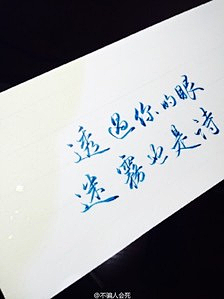 透过你的眼
迷霧也是诗
@不骗人会死